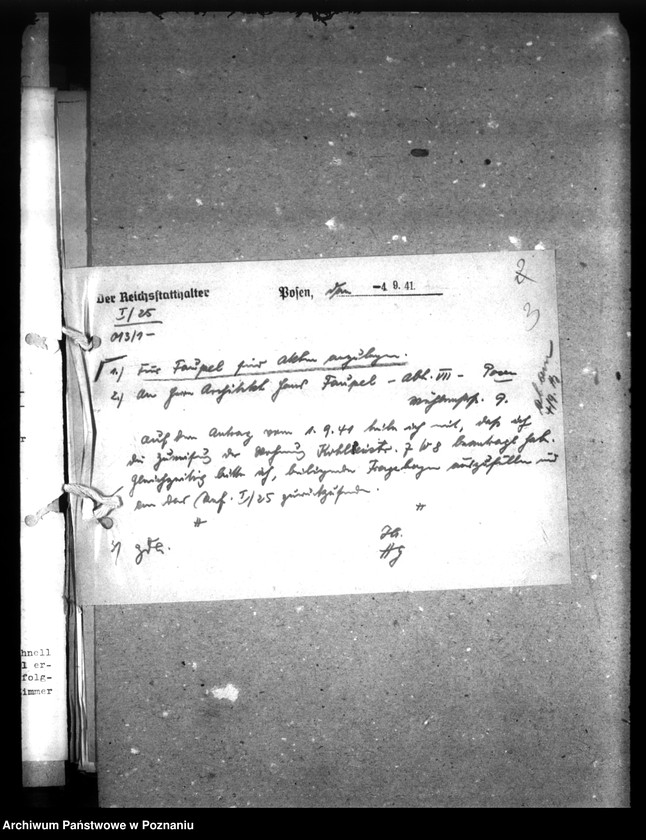 Der Reichsstatthalter
Posen, den -4. 9. 41.
I/25
013/1-
2
3
1.) Für Faupel für Akten anzulegen.
2.) An Herrn Architekt Hans Faupel - Abt. VII - Posen
9.
Auf den Antrag vom 1.9.41 teile ich mit, daß ich
die Zuweisung der Wohnung 7 W 8 beantragt habe.
Gleichzeitig bitte ich, beiliegenden Fragebogen auszufüllen und
an das Ref. I/25 zurückzusenden.
3)
hnell
l er-
folg-
immer
Archiwum Państwowe w Poznaniu